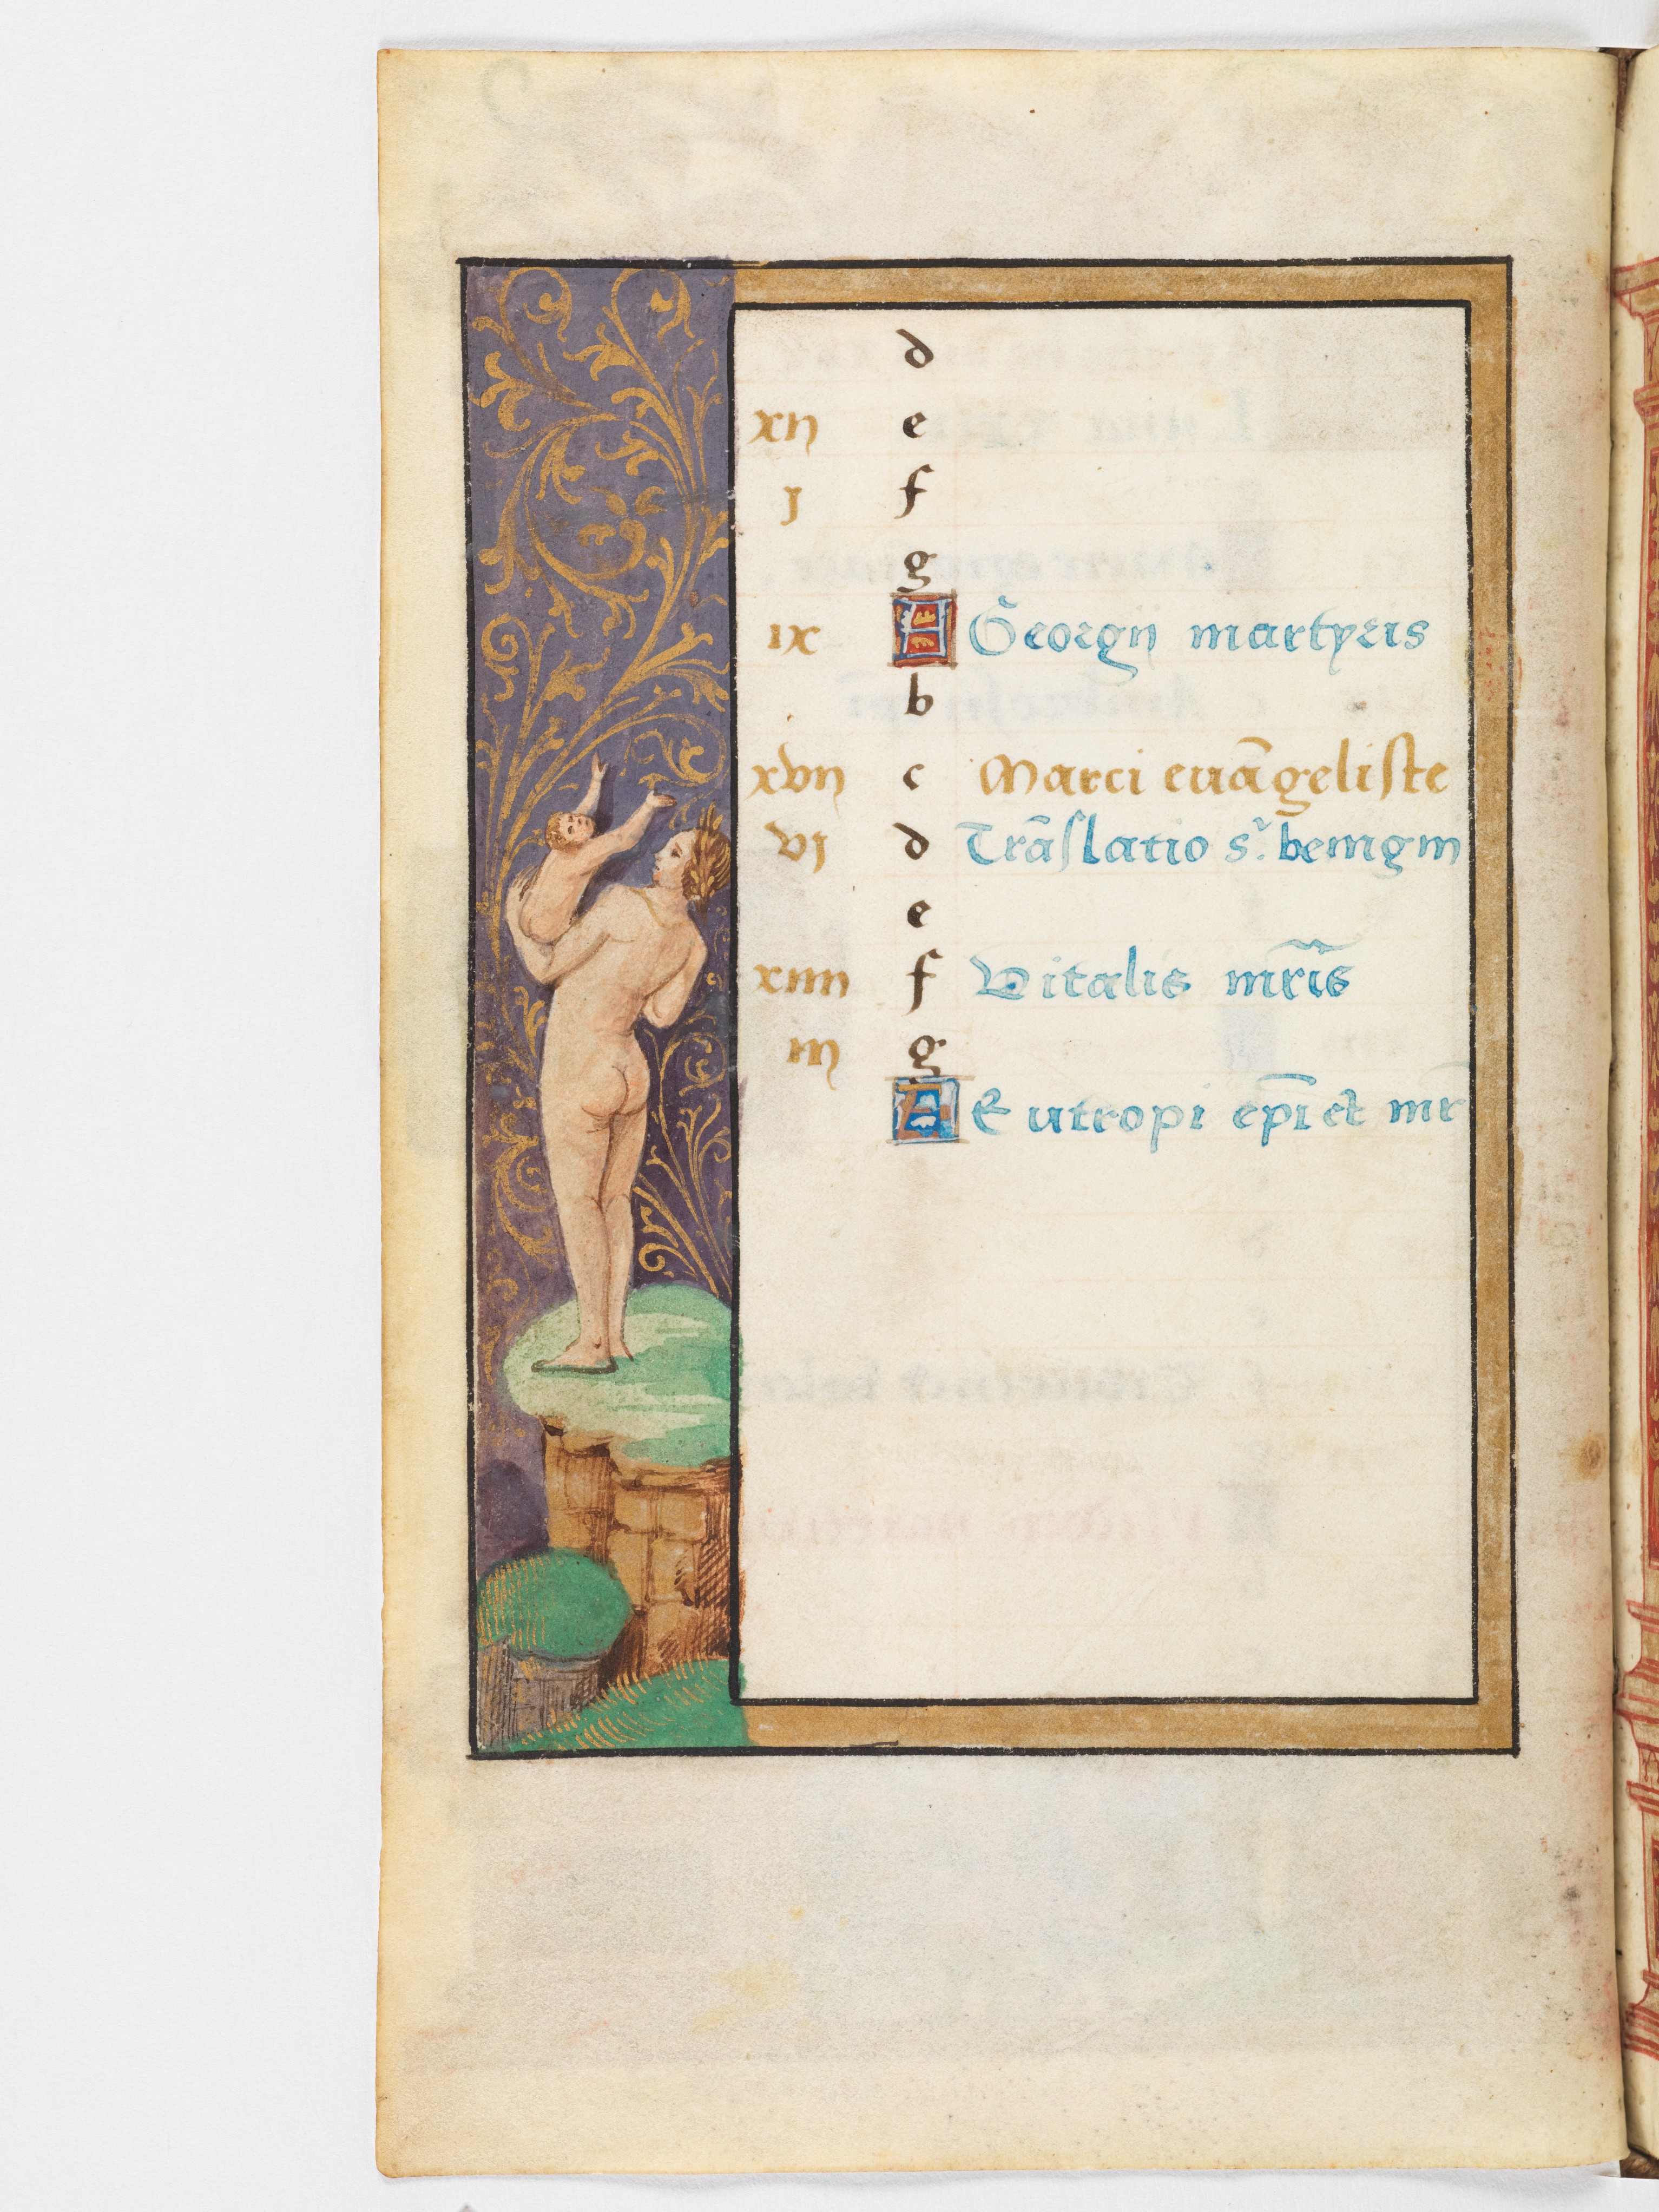 d
xıı e
j f
g
ıx A Georgij martyris
b
xvıı c Marci euãgeliste
vj d Trãslatio s. benigni
e
xıııı f Vitalis mr̃is
ııı g
A Eutropi ep̄i et mr̄